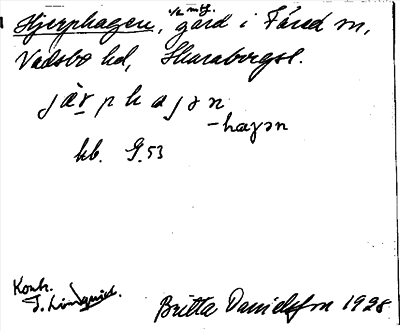 Hjerphagen, 1/2 mtl. gård i Fåred sn,
Vadsbo hd, Skarabergsl.
järphaʒən
-haʒən
hb. G. 53
Kontr.
T. Lindquist.
Britta Danielsson 1928